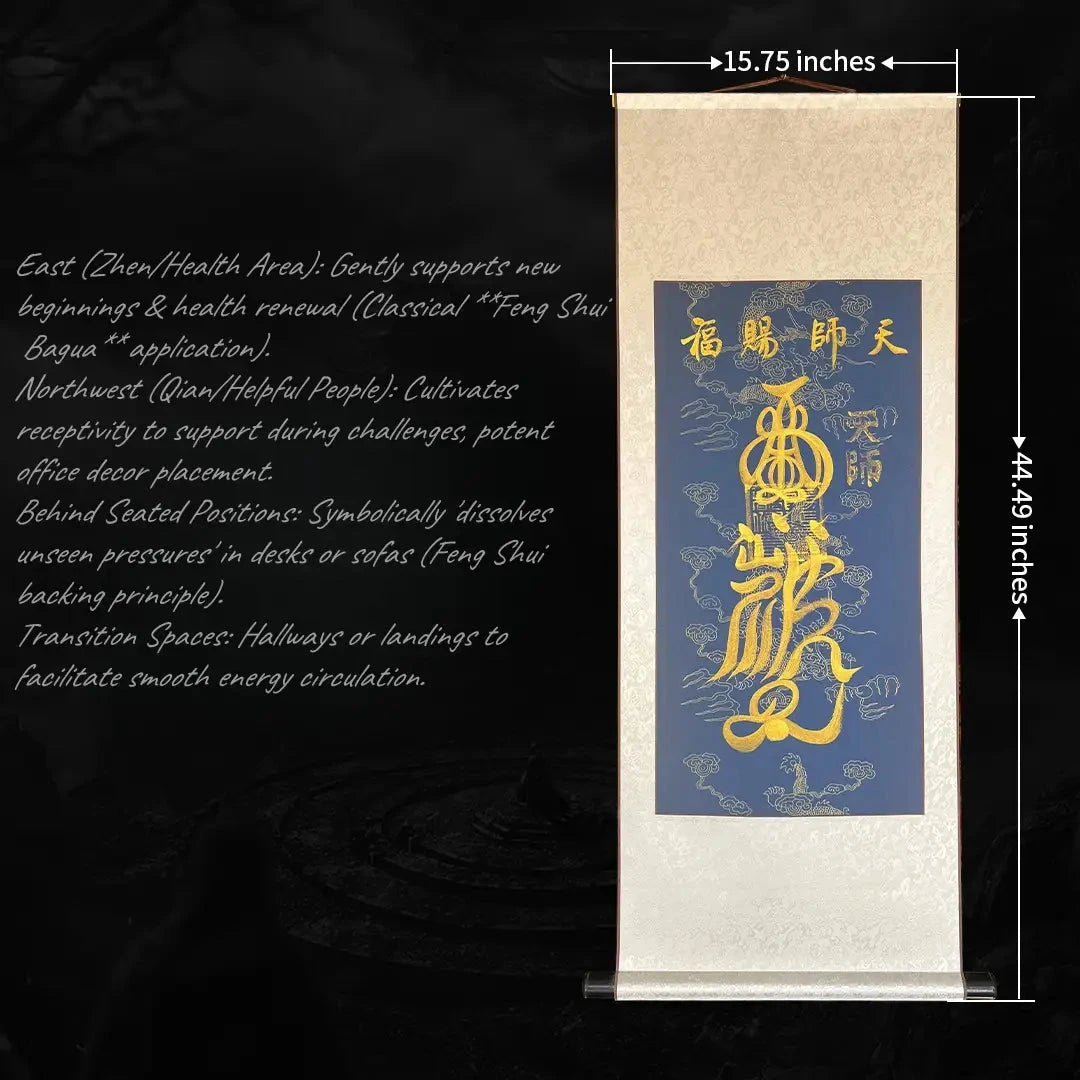 15.75 inches
44.49 inches
East (Zhen/Health Area): Gently supports new
beginnings & health renewal (Classical **Feng Shui
Bagua** application).
Northwest (Qian/Helpful People): Cultivates
receptivity to support during challenges, potent
office decor placement.
Behind Seated Positions: Symbolically 'dissolves
unseen pressures' in desks or sofas (Feng Shui
backing principle).
Transition Spaces: Hallways or landings to
facilitate smooth energy circulation.
天師賜福
天師